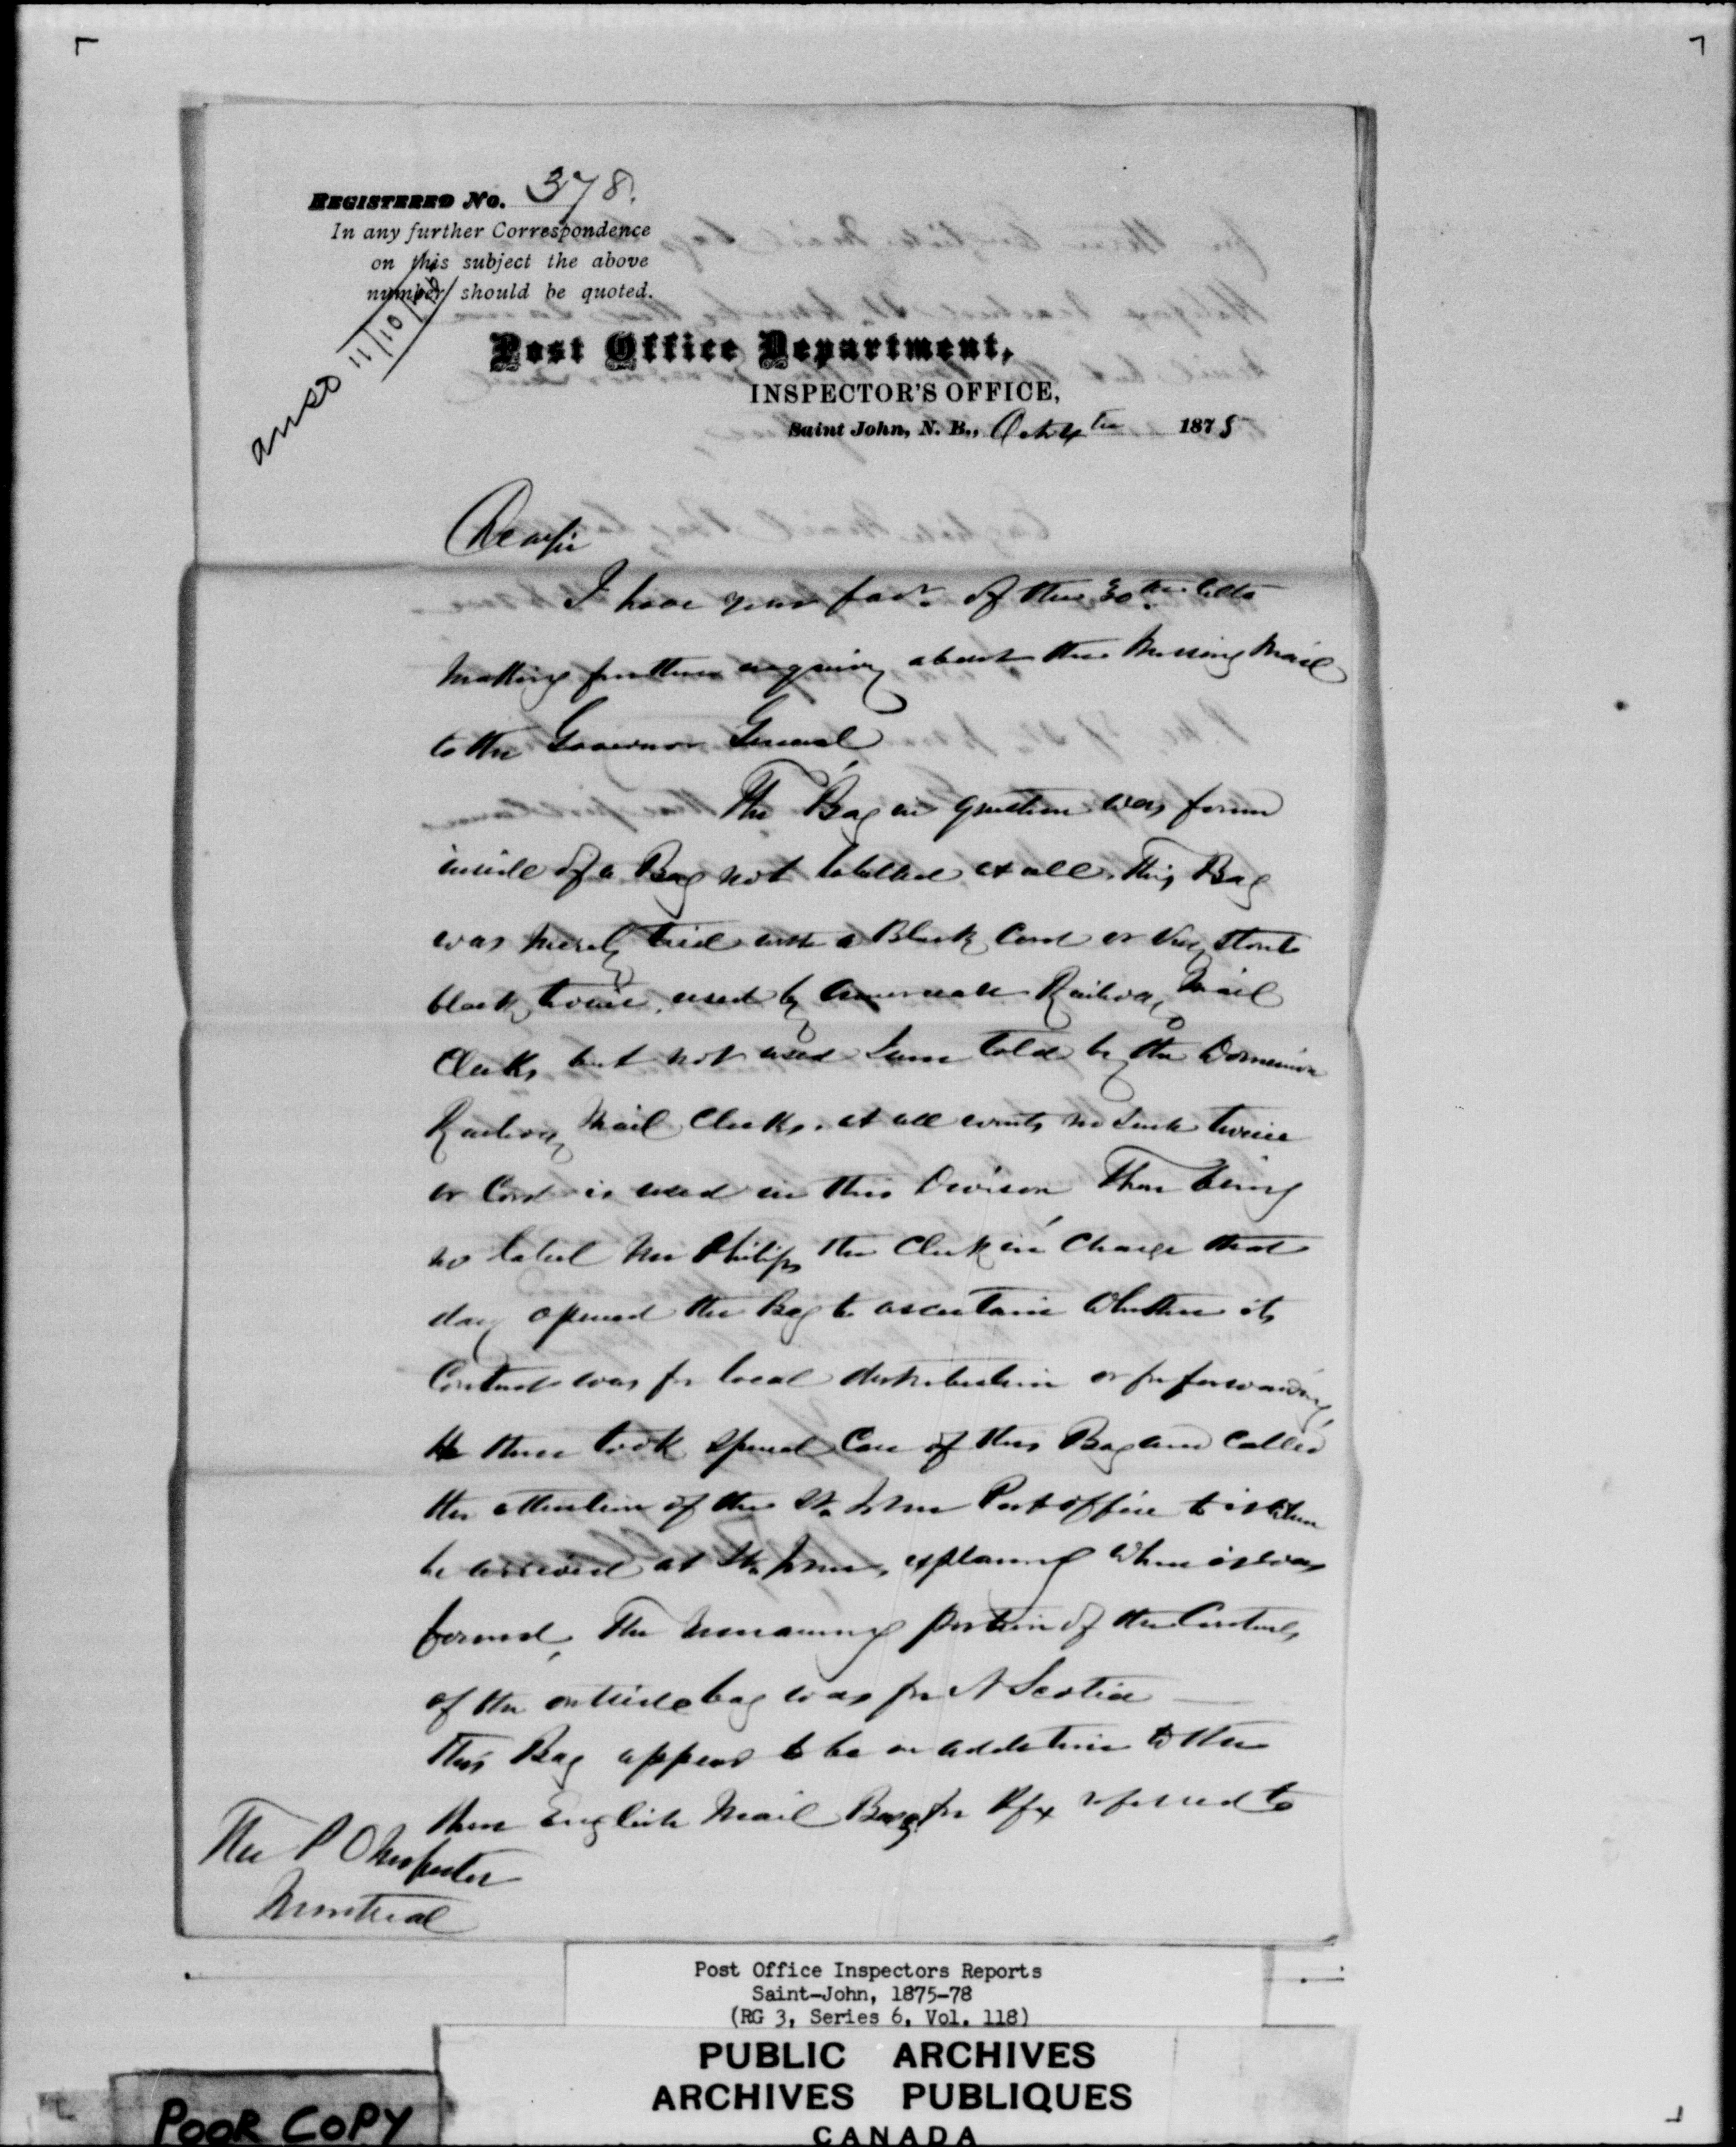 REGISTERED No. 378.
In any further Correspondence
on this subject the above
number should be quoted.
ansd 11/10/75
Post Office Department,
INSPECTOR'S OFFICE,
Saint John, N. B., Oct 4th 1875
Dear Sir
I have your favr. of the 30th Ulto
making further enquiry about the missing Mail
to the Governor General
The Bag in question was found
inside of a Bag not labelled at all, this Bag
was merely tied with a Black Cord or very stout
black twine, used by American Railway Mail
Clerks, but not used I am told by the Dominion
Railway Mail Clerks, at all events no such twine
or Cord is used in this Division There being
no label Mr Philips the Clerk in Charge that
day opened the Bag to ascertain whether its
Contents was for local distribution or for forwarding,
He then took special Care of this Bag and Called
the attention of the St. John Post office to it when
he arrived at St. John, explaining where it was
found, The remaining portion of the Contents
of the outside bag was for N Scotia
This Bag appears to be in addition to the
three English Mail Bags for Hfx referred to
The P O Inspector
Montreal
Post Office Inspectors Reports
Saint-John, 1875-78
(RG 3, Series 6, Vol. 118)
PUBLIC ARCHIVES
ARCHIVES PUBLIQUES
CANADA
POOR COPY